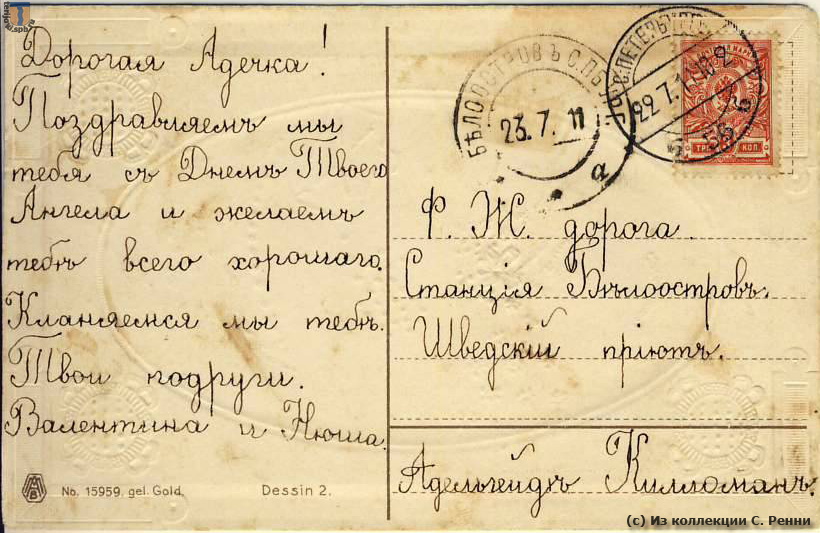 Дорогая Адечка!
Поздравляемъ мы
тебя съ Днемъ Твоего
Ангела и желаемъ
тебѣ всего хорошаго.
Кланяемся мы тебѣ.
Твои подруги.
Валентина и Нюша.
No. 15959, gel. Gold.
Dessin 2.
БѢЛООСТРОВЪ С.ПБ.
23.7.11
а
С.ПЕТЕРБУРГЪ
22.7.11
ТРИ КОП.
Ф. Ж. дорога.
Станція Бѣлоостровъ.
Шведскій пріютъ.
Адельгейдѣ Килломанъ.
(с) Из коллекции С. Ренни